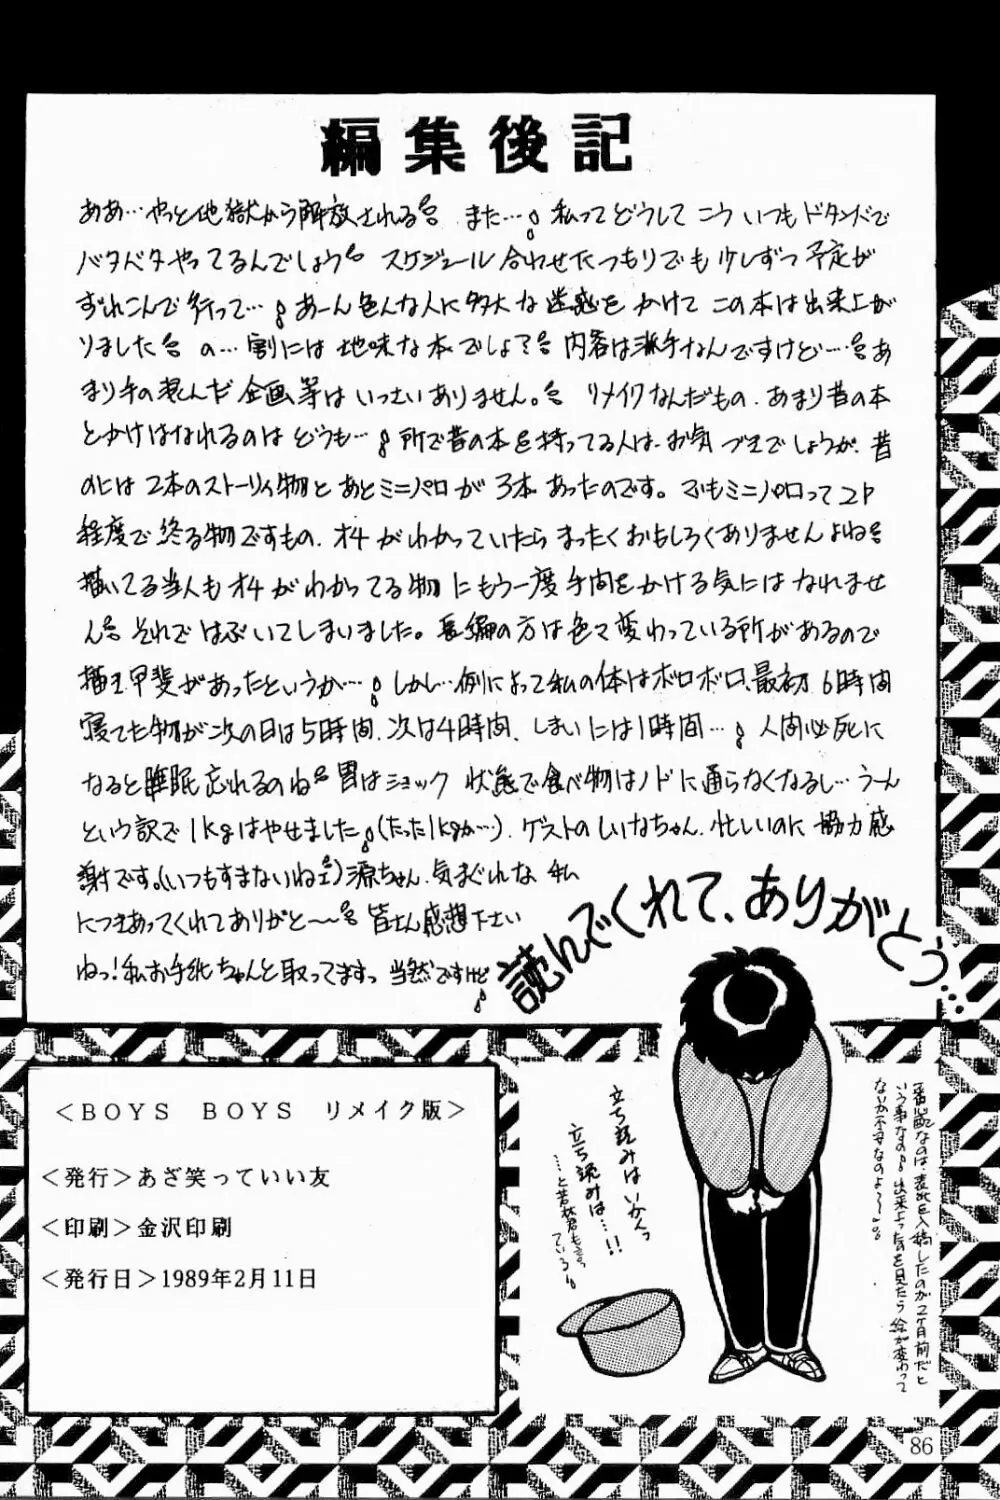 編集後記
ああ…やっと地獄から解放される。また…。私ってどうしてこういつもドタンバで
バタバタやってるんでしょう。スケジュール合わせたつもりでも少しずつ予定が
ずれこんで行って…。あーん色んな人に多大な迷惑をかけてこの本は出来上が
りました。の…割には地味な本でしょ?。内容は派手なんですけど…。あ
まり手の混んだ企画等はいっさいありません。。リメイクなんだもの、あまり昔の本
とかけはなれるのはどうも…。所で昔の本を持ってる人は、お気づきでしょうが、昔
のには2本のストーリィ物とあとミニパロが3本あったのです。でもミニパロって2P
程度で終る物ですもの、オチがわかっていたらまったくおもしろくありませんよね。
描いてる当人もオチがわかってる物にもう一度手間をかける気にはなれませ
ん。それではぶいてしまいました。長編の方は色々変わっている所があるので
描き甲斐があったというか…。しかし…例によって私の体はボロボロ、最初6時間
寝てた物が次の日は5時間、次は4時間、しまいには1時間…。人間必死に
なると睡眠忘れるのね。胃はショック状態で食べ物はノドに通らなくなるし…うーん
という訳で1kgはやせました。(たった1kgか…)、ゲストのしいなちゃん、忙しいのに協力感
謝です。(いつもすまないねェ)源ちゃん、気まぐれな私
につきあってくれてありがと〜〜。皆さん感想下さい
ねっ!私お手紙ちゃんと取ってますっ当然ですけど
読んでくれて、ありがとう…
一番心配なのは、表紙を入稿したのが2ヶ月前だと
いう事なの。出来上ったのを見たら絵が変わって
ないか不安なのよ〜。
立ち読みはいかんっ
立ち読みは…!!
…と若林君も言っ
ている。
<BOYS BOYS リメイク版>
<発行>あざ笑っていい友
<印刷>金沢印刷
<発行日>1989年2月11日
86